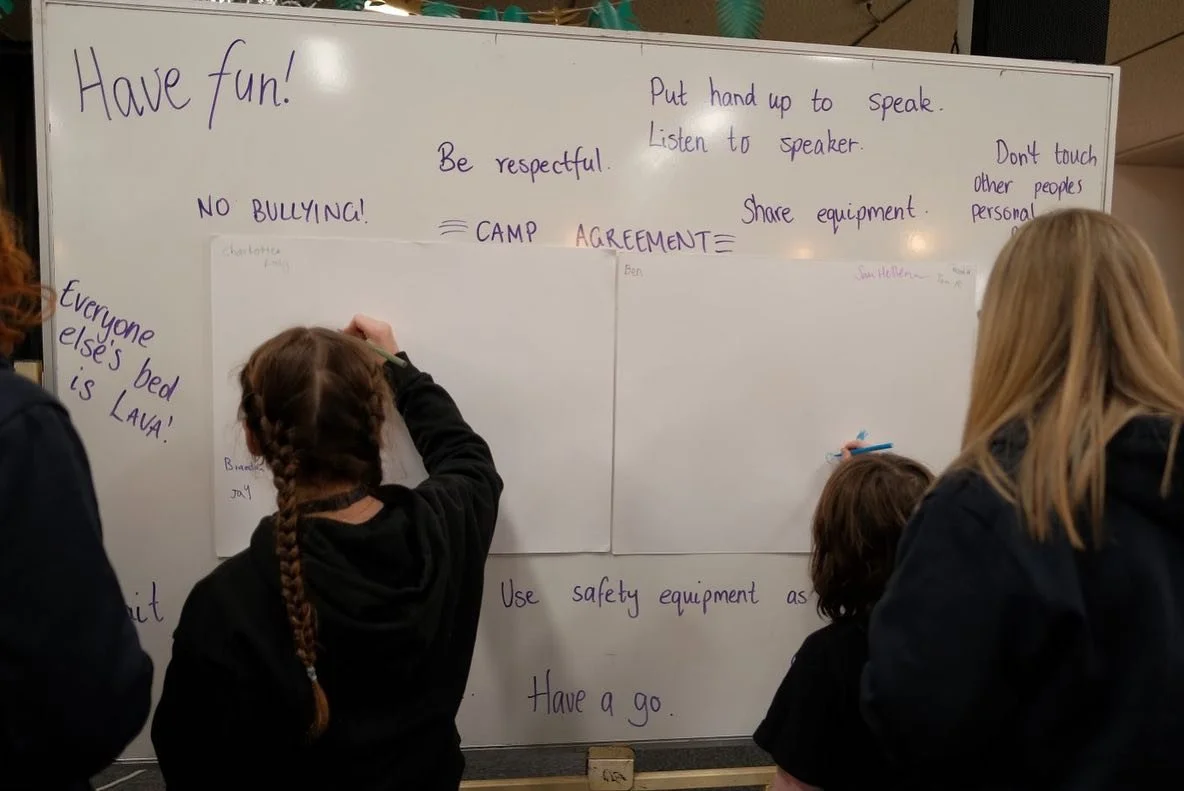 Have fun!
Put hand up to speak.
Listen to speaker.
Be respectful.
Don't touch
other peoples
personal
NO BULLYING!
Share equipment.
CAMP AGREEMENT
Everyone
else's bed
is LAVA!
Ben
Jay
Use safety equipment as
Have a go.